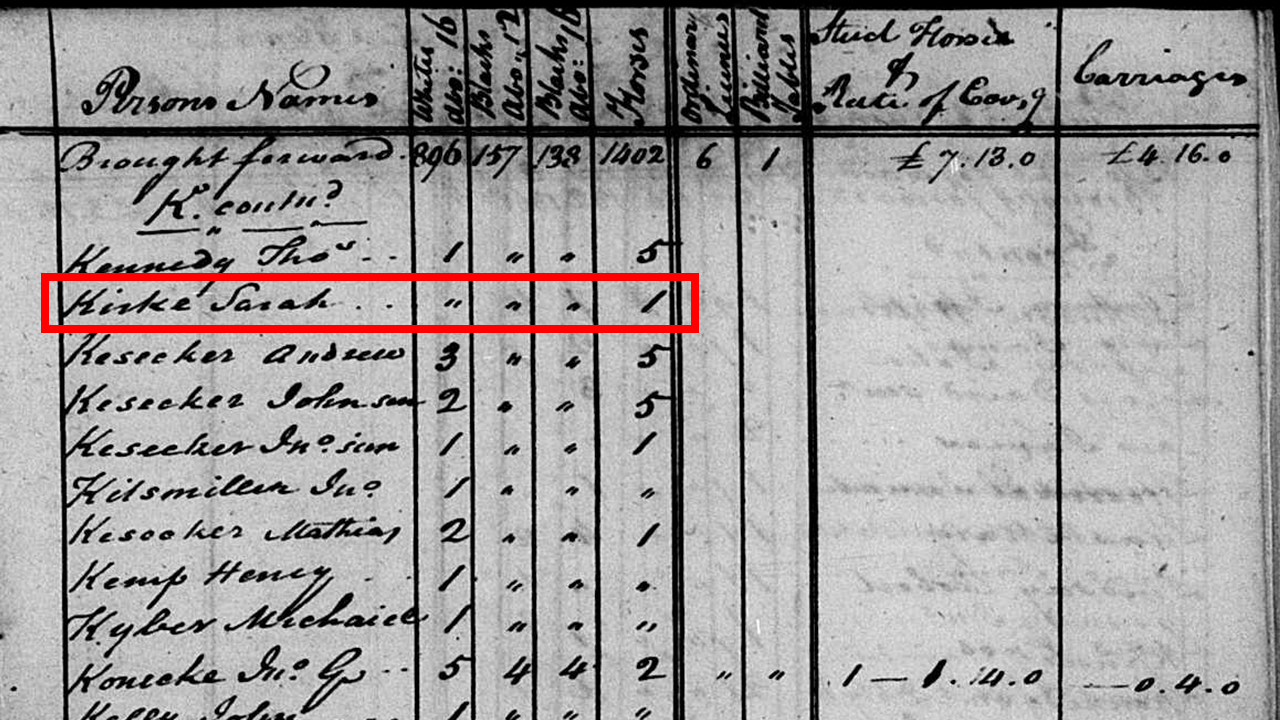 Persons Names Whites abo: 16 Blacks Abo: 12 Blacks Abo: 16 Horses Ordinary Billiard Tables Stud Horses & Rate of Cov,g Carriages
Brought forward 896 157 138 1402 6 1 £ 7.13.0 £4.16.0
K,s contn,d
Kennedy Tho,s - - 1 " " 5
Kirke Sarah . . " " " 1
Kesecker Andrew 3 " " 5
Kesecker John sen 2 " " 5
Kesecker Jno. jun 1 " " 1
Kitsmiller Jno 1 " " "
Kesecker Mathias 2 " " 1
Kemp Henry 1 " " "
Kyber Michael 1 " " "
Konecke Jno. G - - 5 4 4 2 " " 1 — 1.14.0 —0.4.0
Kelly John 1 " "